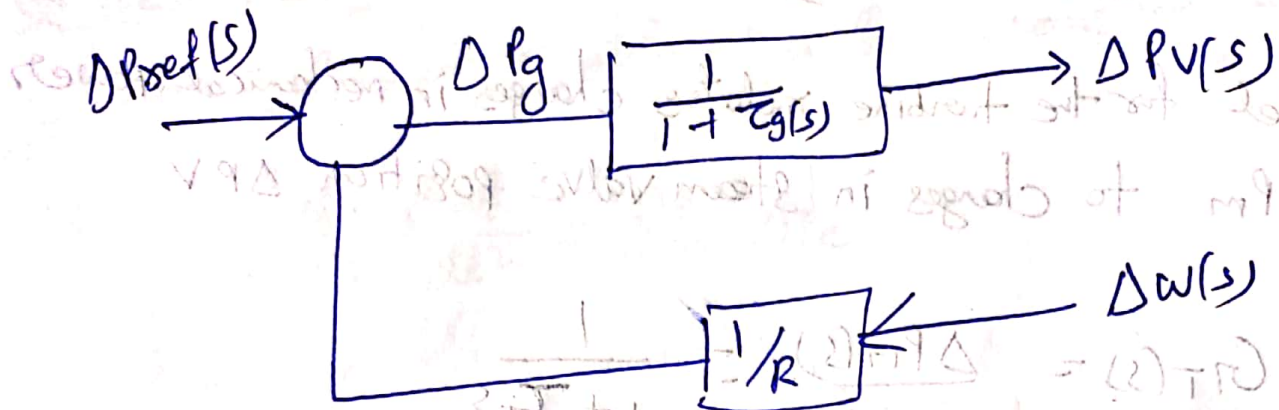 ΔPref(s)
ΔPg
1
1 + τg(s)
ΔPV(s)
Δω(s)
1/R